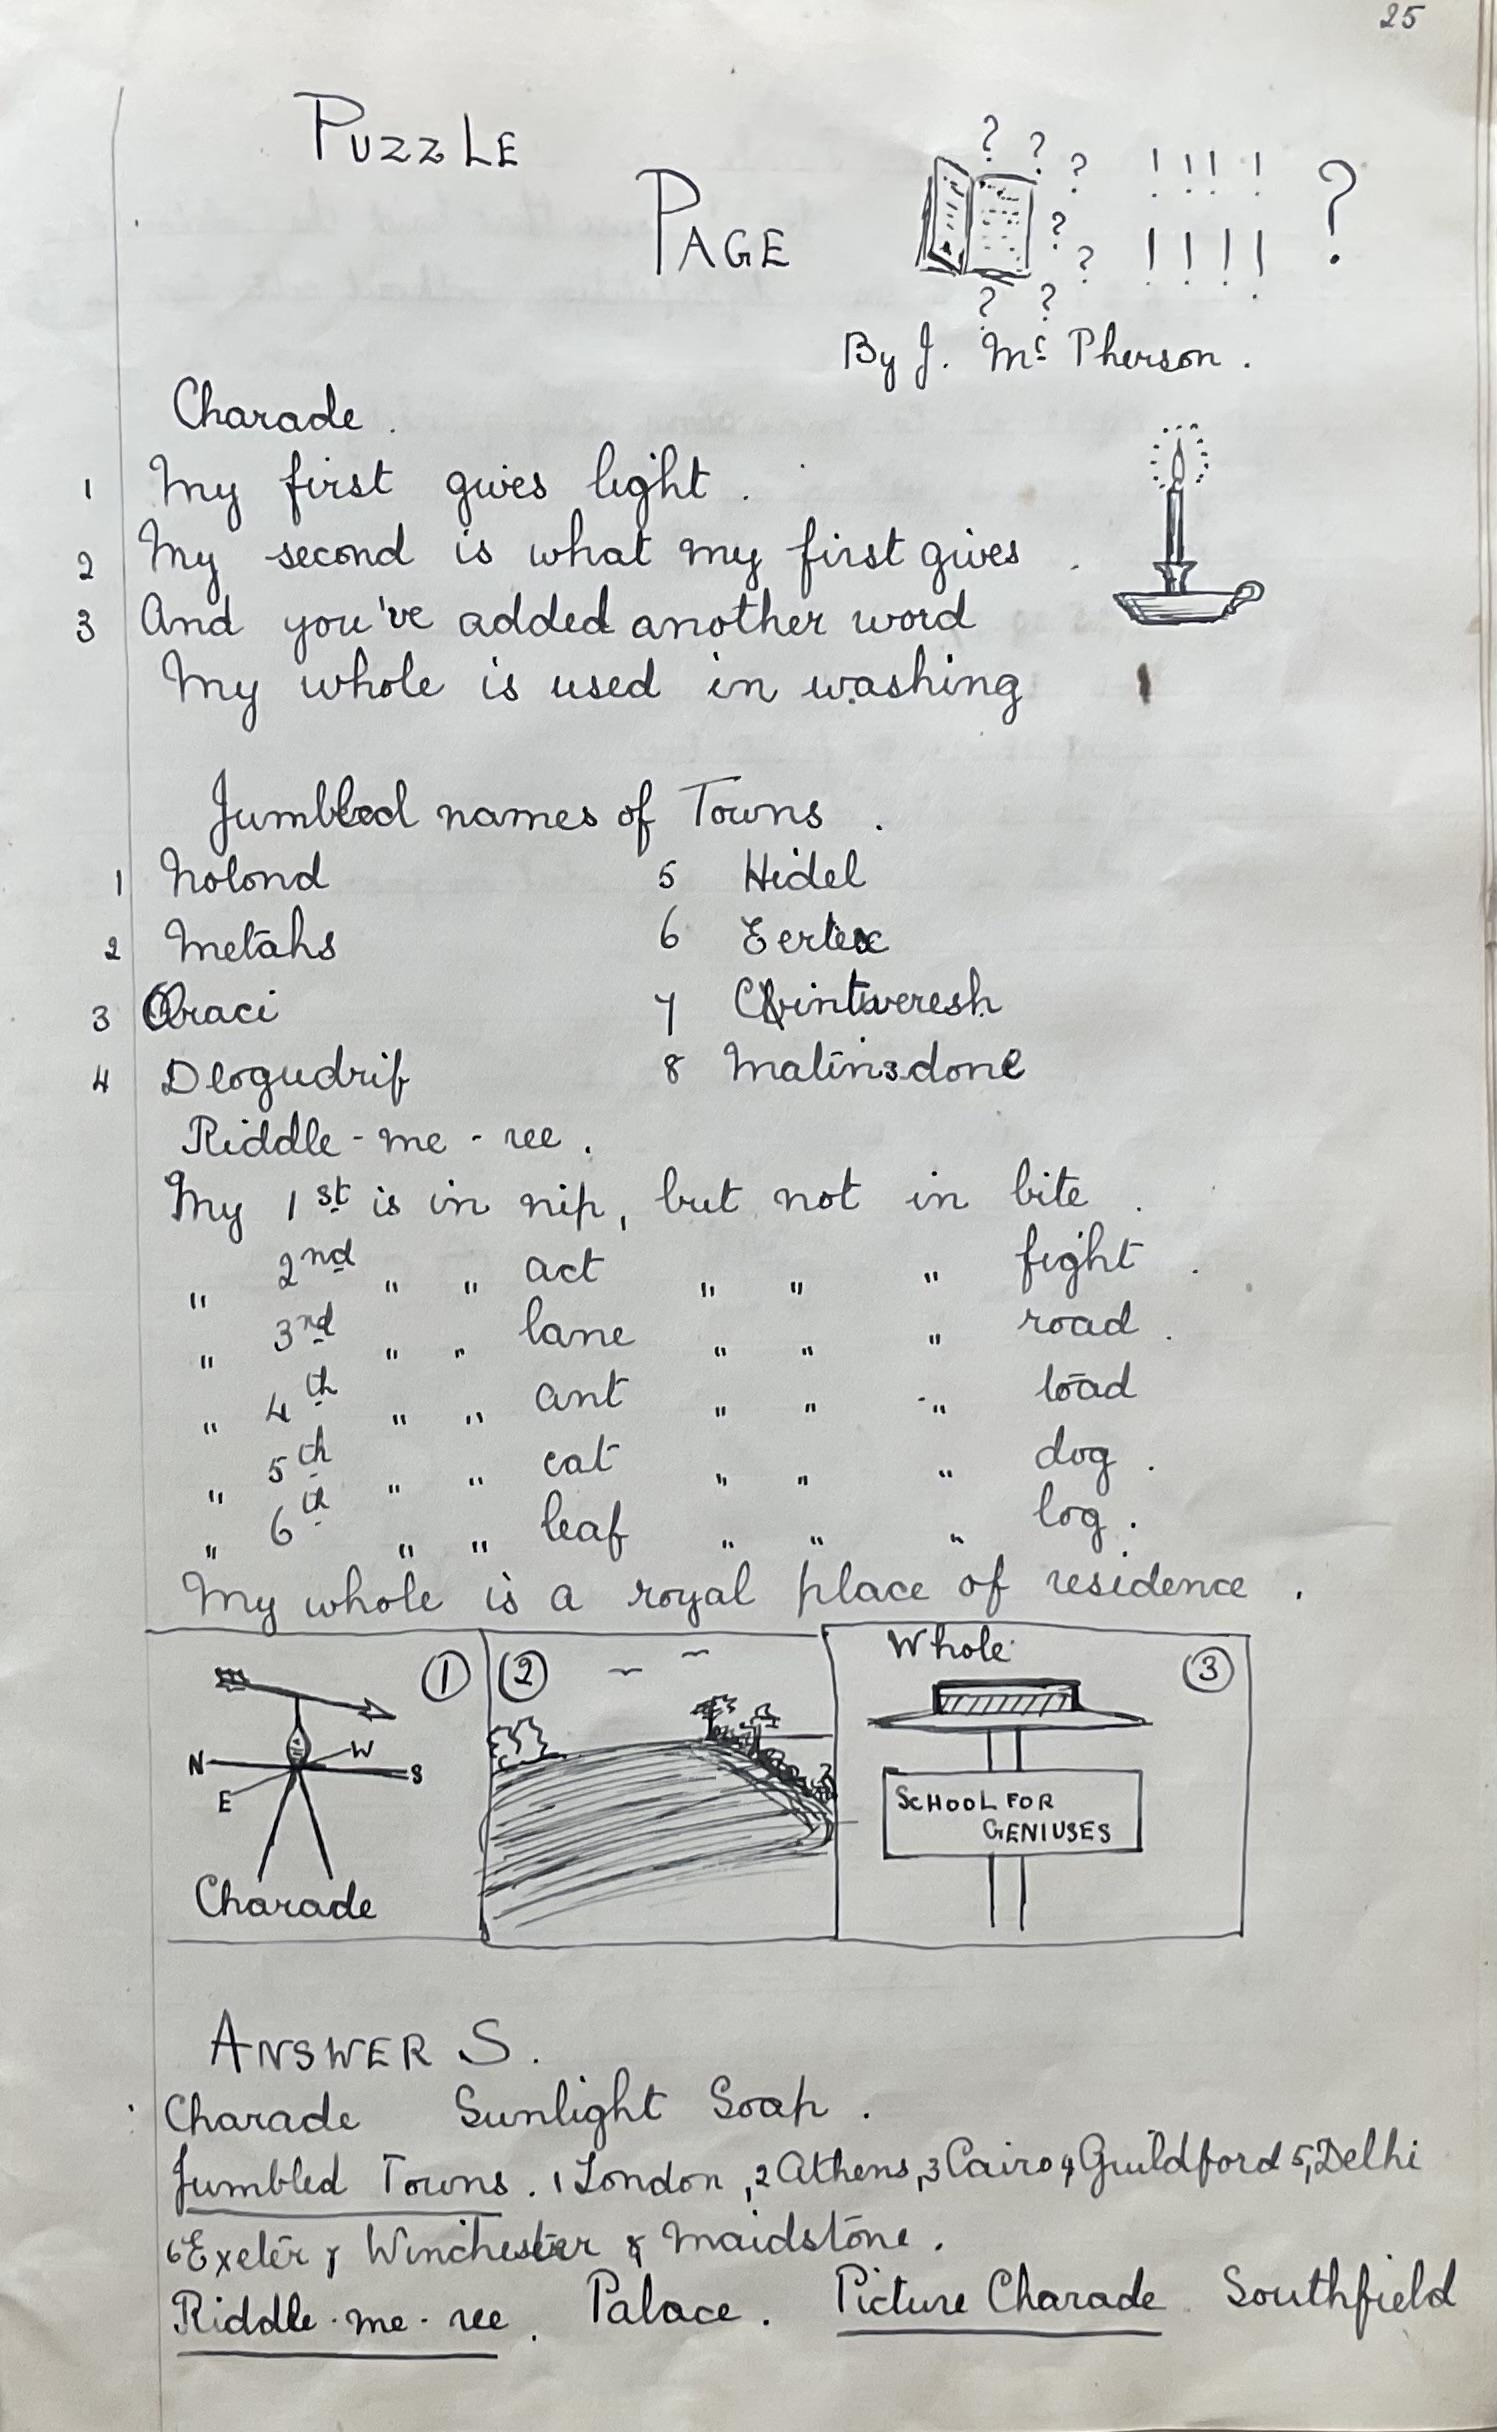 25
PUZZLE
PAGE
? ? ? ! ! ! ! ?
? ? ! ! ! !
? ?
By J. Mc Pherson.
Charade.
1 My first gives light.
2 My second is what my first gives.
3 And you've added another word
My whole is used in washing
Jumbled names of Towns.
1 Nolond 5 Hidel
2 Metahs 6 Eertex
3 Oraci 7 Cintweresh
4 Deogudrif 8 Matinsdone
Riddle-me-ree.
My 1st is in nip, but not in bite.
" 2nd " " act " " " fight.
" 3rd " " lane " " " road.
" 4th " " ant " " " load
" 5th " " eat " " " dog.
" 6th " " leaf " " " log.
My whole is a royal place of residence.
① ② Whole ③
N W S E
SCHOOL FOR
GENIUSES
Charade
ANSWERS.
Charade Sunlight Soap.
Jumbled Towns. 1 London, 2 Athens, 3 Cairo 4, Guildford 5, Delhi
6 Exeter 7 Winchester 8 Maidstone.
Riddle-me-ree. Palace. Picture Charade Southfield